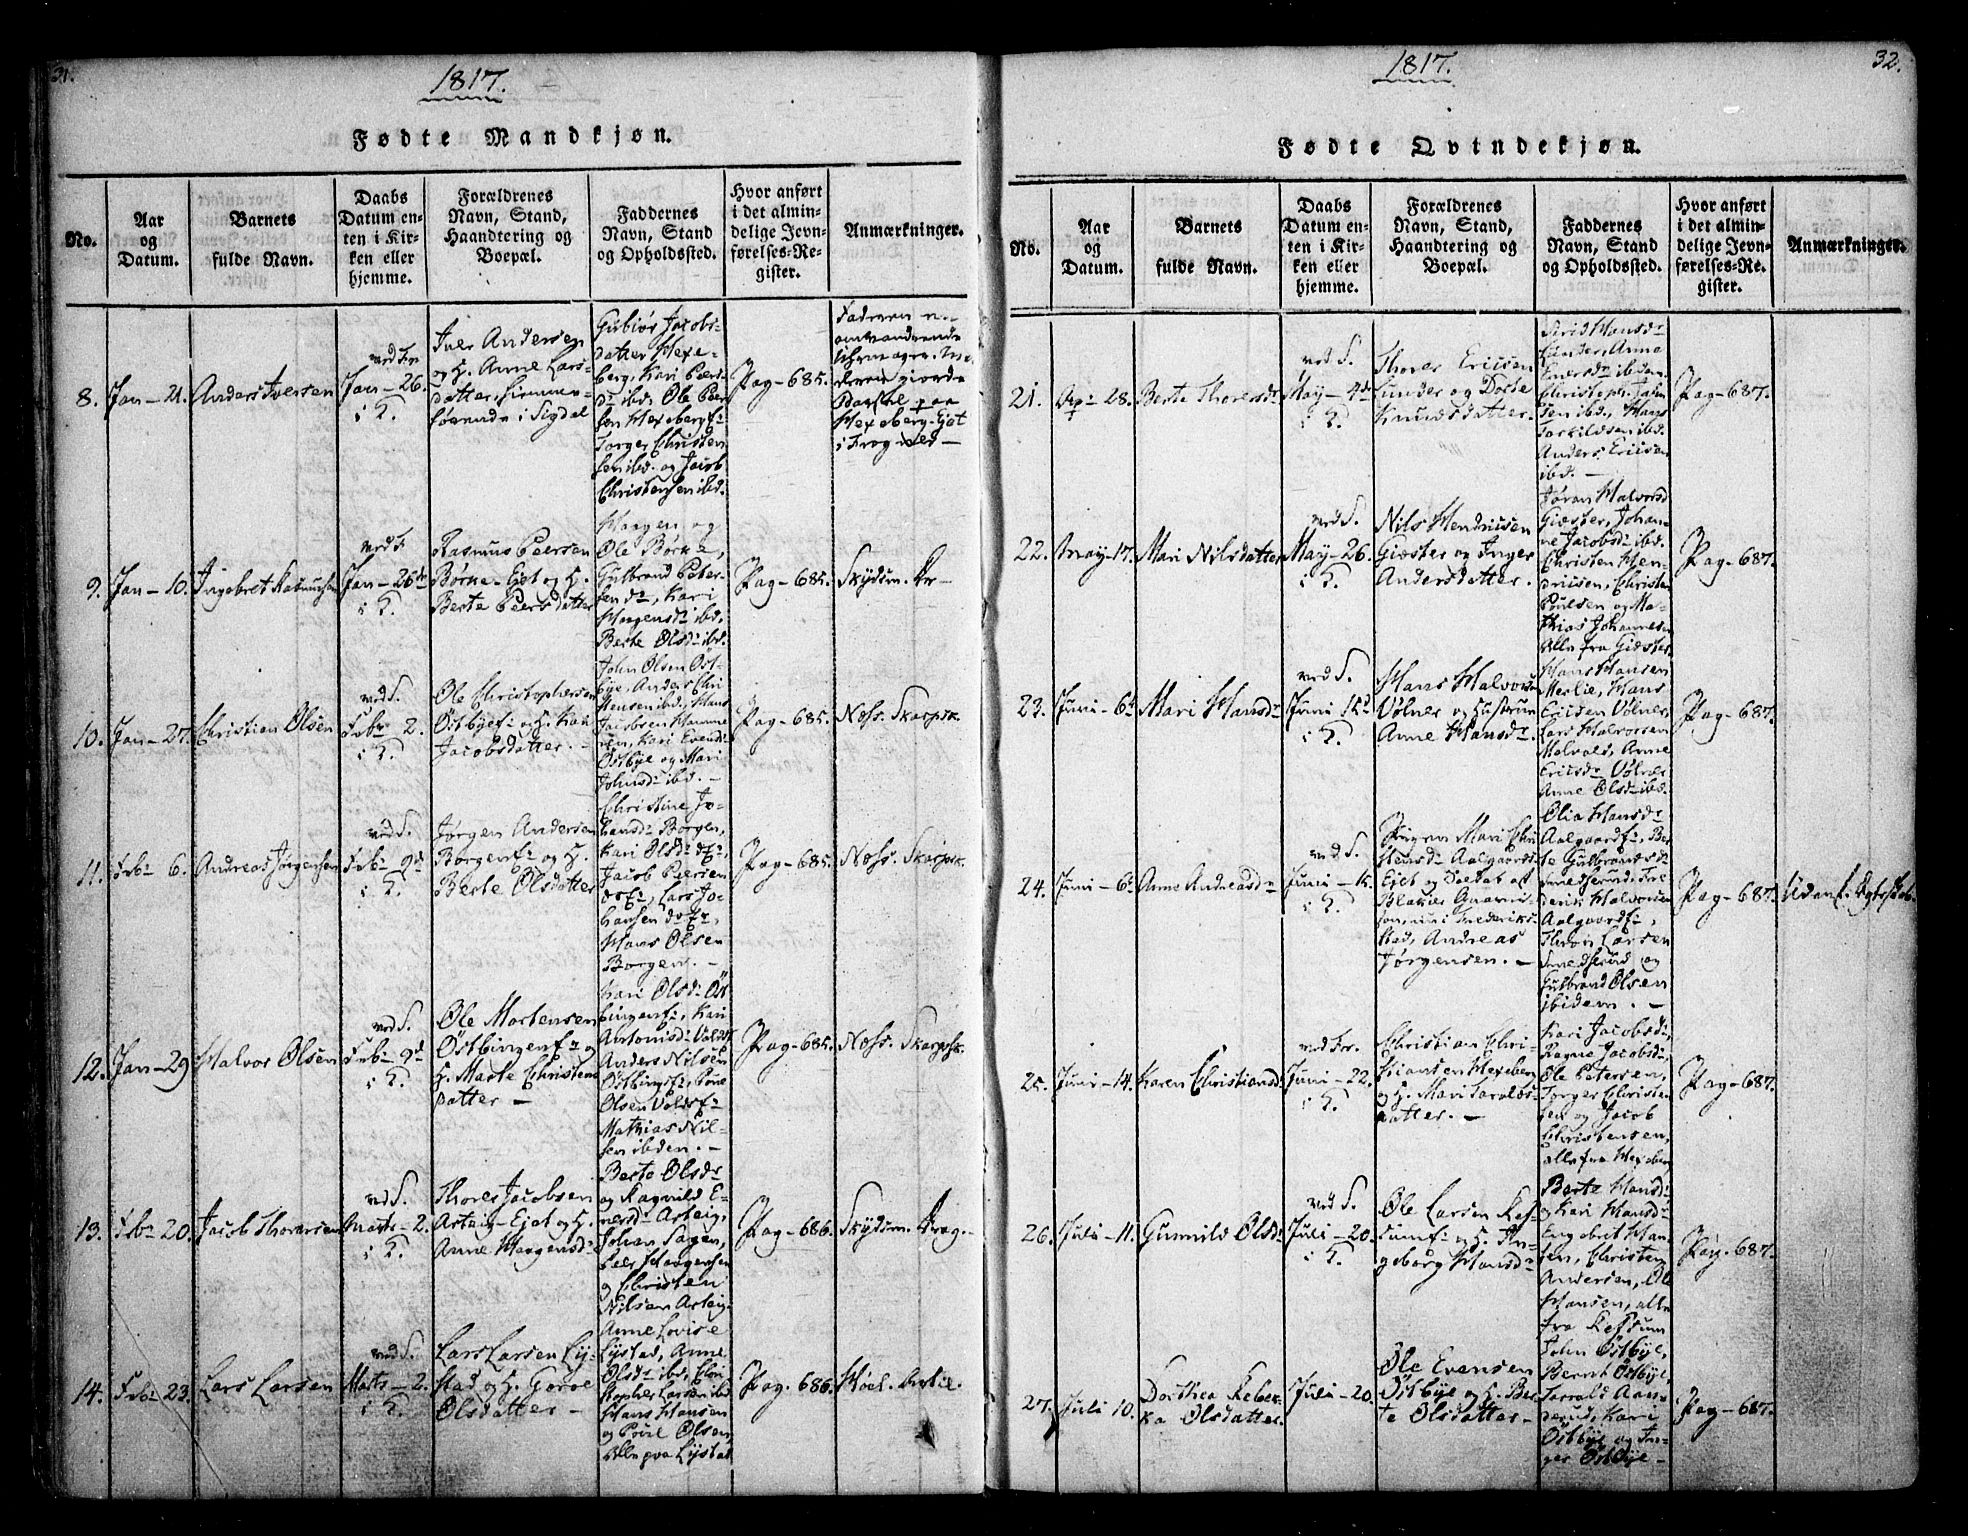 31.
1817.
Fødte Mandkjøn.
No.
Aar
og
Datum.
Barnets
fulde Navn.
Daabs
Datum en-
ten i Kir-
ken eller
hjemme.
Forældrenes
Navn, Stand,
Haandtering og
Boepæl.
Faddernes
Navn, Stand
og Opholdssted.
Hvor anført
i det almin-
delige Jevn-
førelses-Re-
gister.
Anmærkninger.
8. Jan - 21. Anders Iversen
Jan - 26.
Iver Andersen
og H. Anne Lars-
datter,
i Sigdal
Gubiør Jacobs-
datter Hexe-
berg, Kari Peers-
dr ibd. Ole Peer
sen Hexeberg
Torger Christen
sen ibd. og Jacob
Christensen ibd.
Pag - 685.
Faderen
Hexeberg-Eiet
i Frogner -
9. Jan - 10. Ingebret Rasmussen
Jan - 26de
i K.
Rasmus Peersen
Børke-Ejet og H.
Berte Peersdatter
Haagen og
Ole Børke,
Gulbrand Peter-
sen, Kari
Haagensdr ibd.
Berte Olsdr ibd.
Pag - 685.
10. Jan - 27. Christian Olsen
ved S.
Febr - 2.
i K.
Ole Christophersen
Østbye og H. Kari
Jacobsdatter. -
John Olsen Øst-
bye, Anders Chri-
stensen ibd., Hans
Jacobsen
Kari Evensdr
Østbye og Mari
Johnsdr ibd. -
Pag - 685.
Næss. Skarpsk.
11. Febr 6. Andreas Jørgensen
ved S.
Febr - 9de
i K.
Jørgen Andersen
Borgen og H.
Berte Olsdatter
Christine Jo-
hansdr Borgen,
Kari Olsdr
Jacob Peersen
Lars Jo-
hansen
Hans Olsen
Borgen. -
Pag - 685.
Næss. Skarpsk.
12. Jan - 29 Halvor Olsen
ved S.
Febr - 9de
i K.
Ole Mortensen
Østbingen og
H. Marte Christens
datter -
Kari Olsdr Øst
bingen, Kari
Antonisdr
Anders Nilsen
Østbings
Olsen
Mathias Nil-
sen ibden. -
Pag - 685.
Næss. Skarpsk.
13. Febr 20. Jacob Thorersen
ved S.
Marts - 2.
i K.
Thorer Jacobsen
Asteig-Ejet og H.
Anne Haagensdr
Berte Olsdr
og Ragnild E-
versdr Asteig,
Johan Sagen,
Peer Haagensen
og Christen
Nilsen Asteig.
Pag - 686.
14. Febr 23. Lars Larsen
ved S.
Marts - 2.
i K.
Lars Larsen Ly-
stad og H. Goroe
Olsdatter -
Anne Lovise
Lystad, Anne
Olsdr ibd., Chri
stopher Larsen ibd.
Hans Hansen
og Povel Olsen,
Alle paa Lystad
Pag. 686.
32.
1817.
Fødte Qvindekjøn.
No.
Aar
og
Datum.
Barnets
fulde Navn.
Daabs
Datum en-
ten i Kir-
ken eller
hjemme.
Forældrenes
Navn, Stand,
Haandtering og
Boepæl.
Faddernes
Navn, Stand
og Opholdssted.
Hvor anført
i det almin-
delige Jevn-
førelses-Re-
gister.
Anmærkninger.
21. Apr 28. Berte Thorersdr
ved S.
May - 4de
i K.
Thorer Ericsen
Funder og Dorte
Knudsdatter.
Sirid Hansdr
Funder, Anna
ibdem
Christoph:
sen ibd., Hans
Torkildsen ibd.
Anders Ericsen
ibd. -
Pag - 687.
22. May - 17. Mari Nilsdatter
ved S.
May - 26.
i K.
Nils Hendricsen
Giæster og Inger
Andersdatter.
Jøran Halvorsd
Giæster, Johan-
ne Jacobsdr ibd.
Christen Hen-
dricsen, Christen
Poulsen og Ma-
thias Johannesen
Alle fra Giæster
Pag - 687.
23. Juni - 6te Mari Hansdr
ved S.
Juni 15de
i K.
Hans Halvorsen
Volner og Hustrue
Anne Hansdr.
Hans Hansen
Merlie, Hans
Ericsen Volner,
Lars Halvorsen
Anne
Ericsdr Volner
Anne Olsdr ibd.
Pag - 687.
24. Juni - 6te Anne Andreasdr
ved S.
Juni - 15.
i K.
Pigen Mari Chri
stensdr Aalgaards
Ejet og Soldat af
Blakier Guarni-
son, nu i Frederiks-
stad, Andreas
Jørgensen. -
Olia Hansdr
Aalgaard, Ber-
te Gulbrandsdr
Smedsrud, Fre-
derik Halvorsen
Aalgaard,
Thron Larsen
Smedsrud og
Gulbrand Olsen
ibidem. -
Pag - 687.
25. Juni - 14. Karen Christiansdr
ved Fr.
Juni - 22.
i K.
Christian Chri-
stiansen Hexeberg
og H. Mari Taralds-
datter. -
Kari Jacobsdr,
Ragne Jacobsdr,
Ole Petersen,
Torger Christen-
sen og Jacob
Christensen,
alle fra Hexeberg
Pag - 687.
26. Juli - 11. Gunnild Olsdr
ved S.
Juli - 20.
i K.
Ole Larsen
og H. In-
geborg Hansdr
Berte Hansdr
og Kari Hansdr
Engebret Han-
sen, Christen
Andersen, Ole
Hansen, alle
fra
Pag. 687.
27. Juli 10. Dorthea Rebek-
ka Olsdatter
Juli - 20.
Ole Evensen
Østbye og H. Ber-
te Olsdatter -
John Østbye,
Bernt Østbye,
Kari
Østbye og In-
ger Østbye -
Pag - 687.